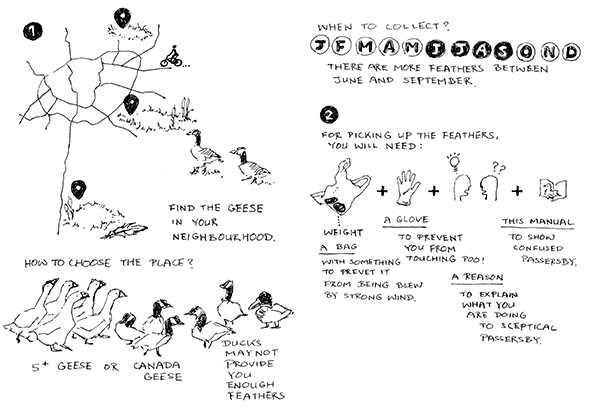 1
FIND THE GEESE
IN YOUR
NEIGHBOURHOOD.
HOW TO CHOOSE THE PLACE?
5+ GEESE OR CANADA
GEESE
DUCKS
MAY NOT
PROVIDE
YOU
ENOUGH
FEATHERS
WHEN TO COLLECT?
J F M A M J J A S O N D
THERE ARE MORE FEATHERS BETWEEN
JUNE AND SEPTEMBER.
2
FOR PICKING UP THE FEATHERS,
YOU WILL NEED:
+ + +
??
WEIGHT
A BAG
WITH SOMETHING
TO PREVET IT
FROM BEING BLEW
BY STRONG WIND.
A GLOVE
TO PREVENT
YOU FROM
TOUCHING POO!
A REASON
TO EXPLAIN
WHAT YOU
ARE DOING
TO SCEPTICAL
PASSERSBY.
THIS MANUAL
TO SHOW
CONFUSED
PASSERSBY.